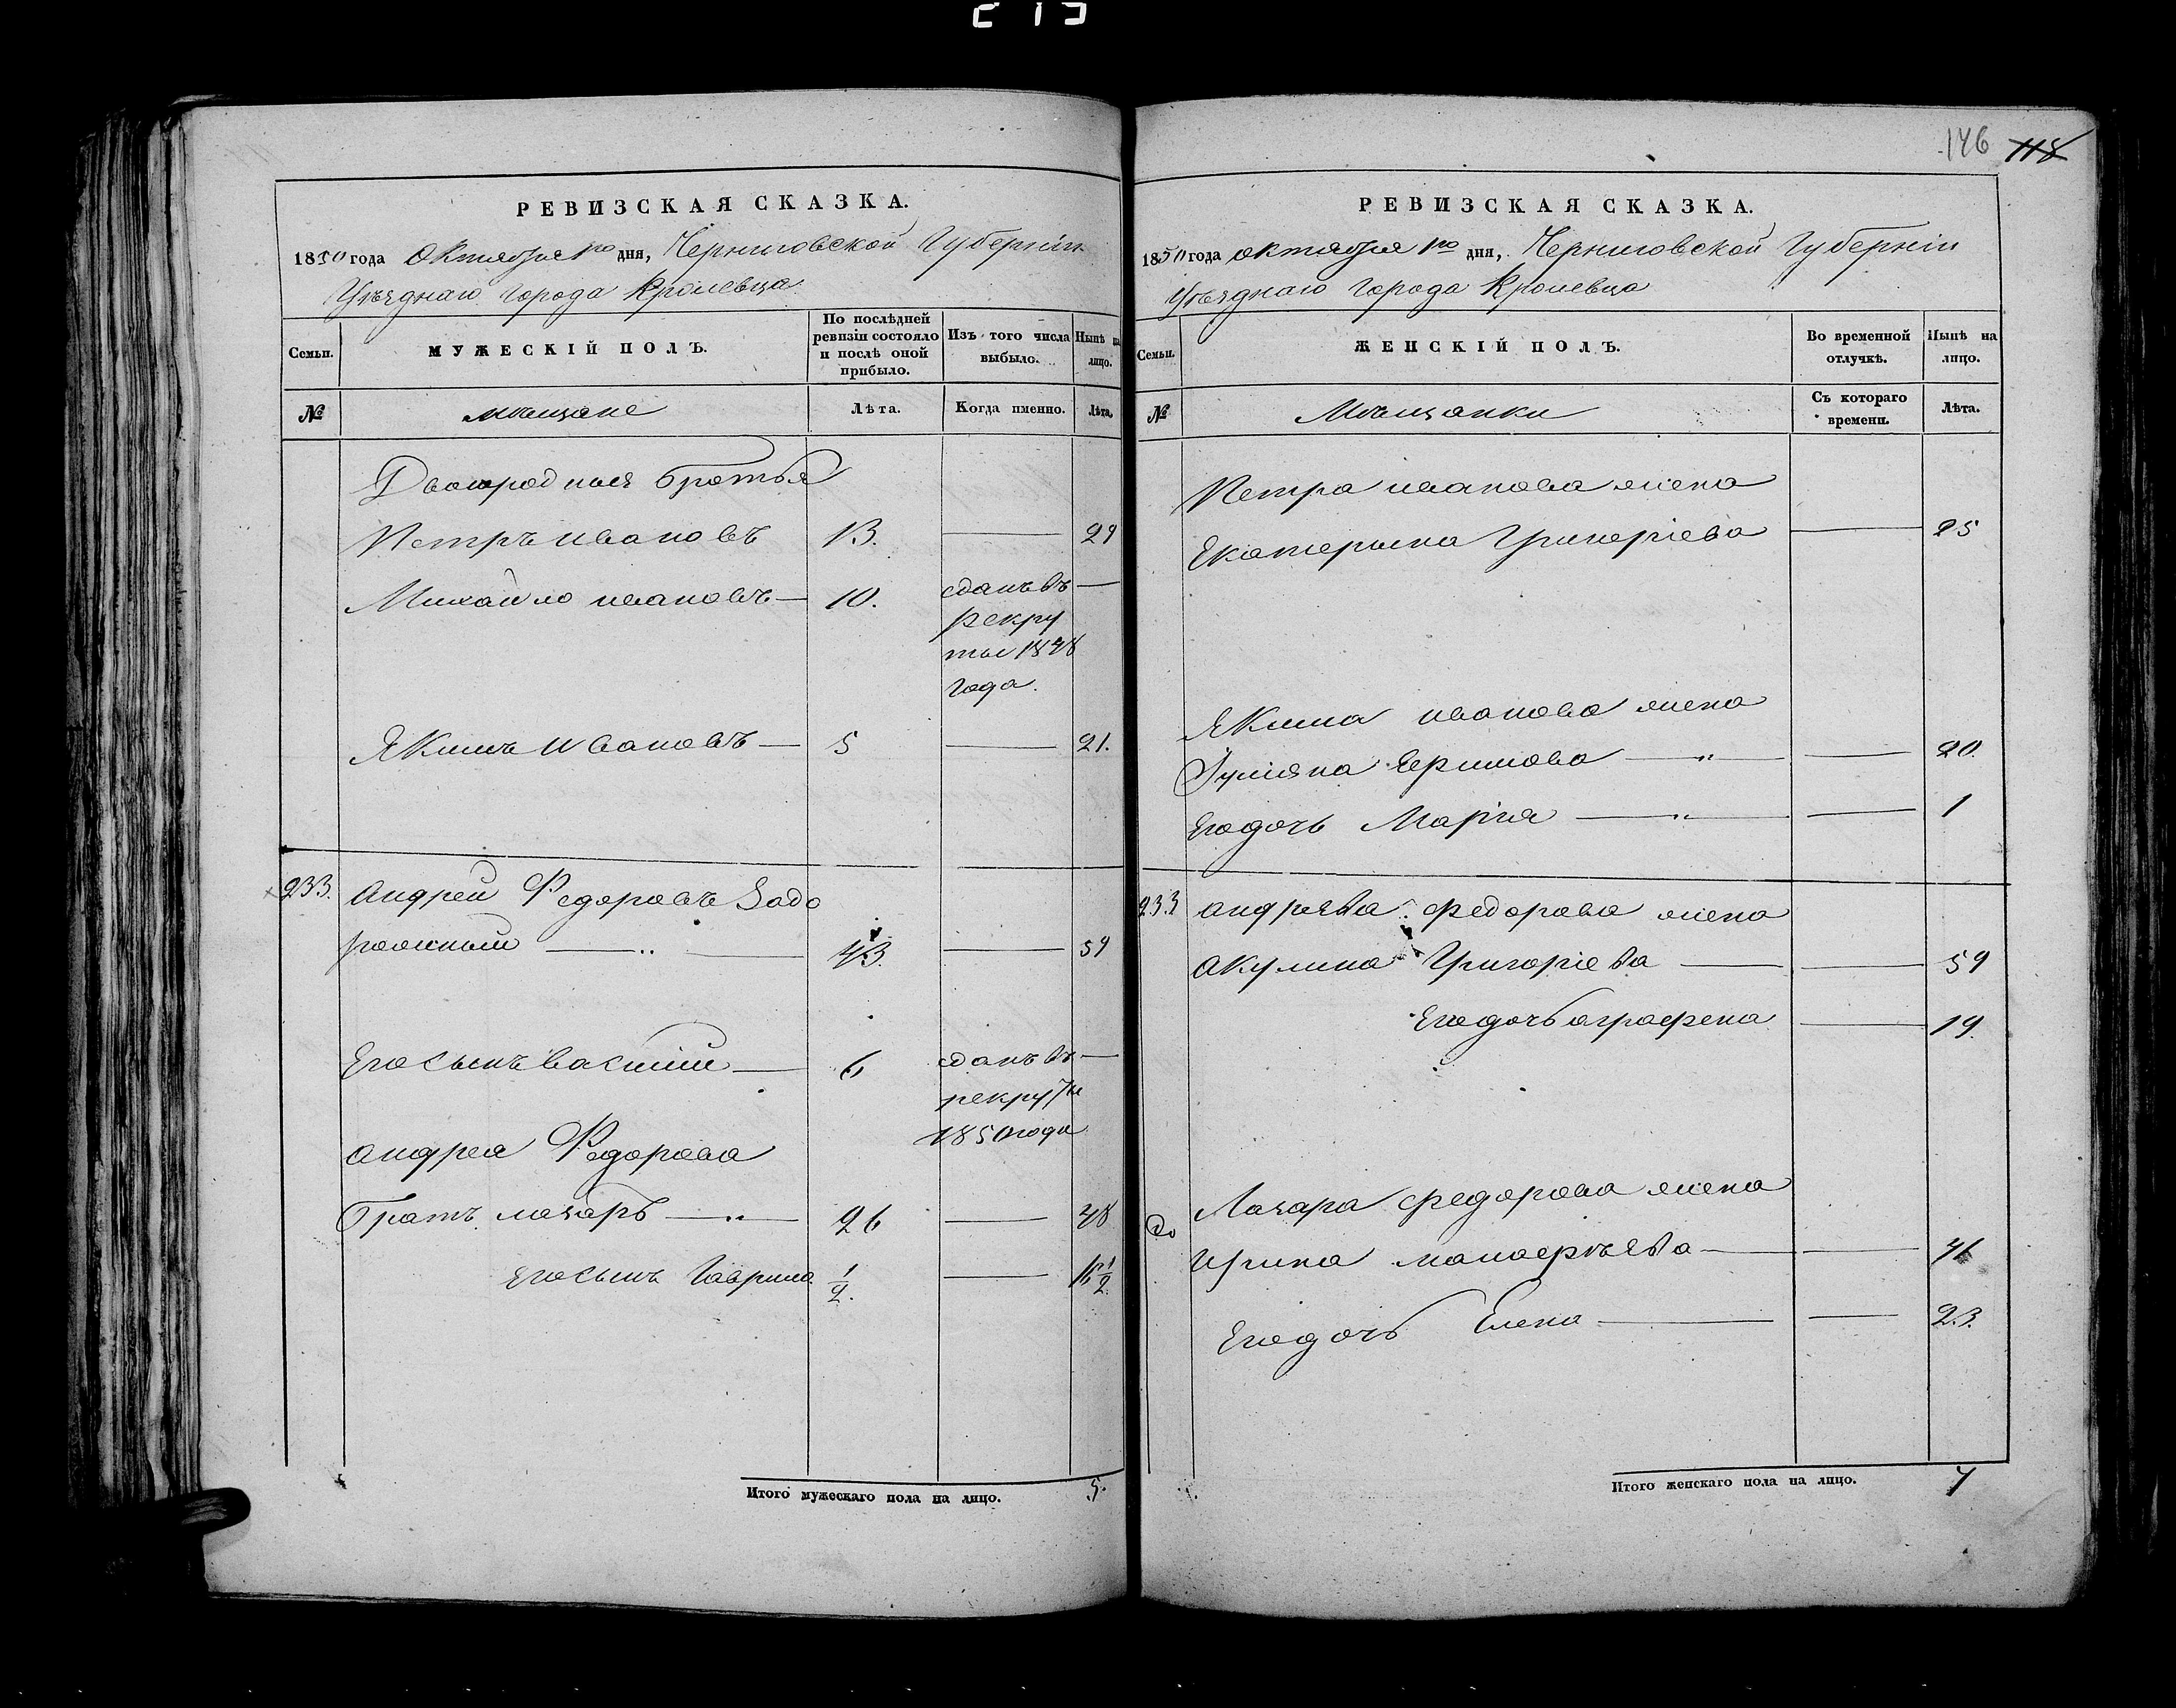 146 118
РЕВИЗСКАЯ СКАЗКА.
1850 года Октября 1го дня, Черниговской Губерніи
Уѣзднаго города Кролевца
Семьи.
МУЖЕСКІЙ ПОЛЪ.
По послѣдней ревизіи состояло и послѣ оной прибыло.
Изъ того числа выбыло.
Нынѣ на лицо.
№
мѣщане
Лѣта.
Когда именно.
Лѣта.
Двоюродныя братья
Петръ Ивановъ 13. — 29
Михайло Ивановъ — 10. сданъ въ —
рекру
ты 1848
года.
Якимъ Ивановъ — 5 — 21.
233. Андрей Федоровъ Задо
рожный — 43. — 59
Его сынъ Василій — 6 сданъ въ —
рекруты
1850 года
Андрея Федорова
братъ Лазарь — 26 — 48
Его сынъ Гаврило 1/2. — 16 1/2
Итого мужескаго пола на лицо. 5.
РЕВИЗСКАЯ СКАЗКА.
1850 года октября 1го дня, Черниговской Губерніи
Уѣзднаго города Кролевца
Семьи.
ЖЕНСКІЙ ПОЛЪ.
Во временной отлучкѣ.
Нынѣ на лицо.
№
Мѣщанки
Съ котораго времени.
Лѣта.
Петра Иванова жена
Екатерына Григоріева — 25
Якима Иванова жена
Іуліяна Ефимова — — 20.
Его дочь Марія — — 1
233 Андрѣява Федорова жена
Акулина Григоріева — — 59
Его дочь Аграфена — 19.
Лазара Федорова жена
Ирина — — 46
Его дочь Елена — — 23.
Итого женскаго пола на лицо. 7